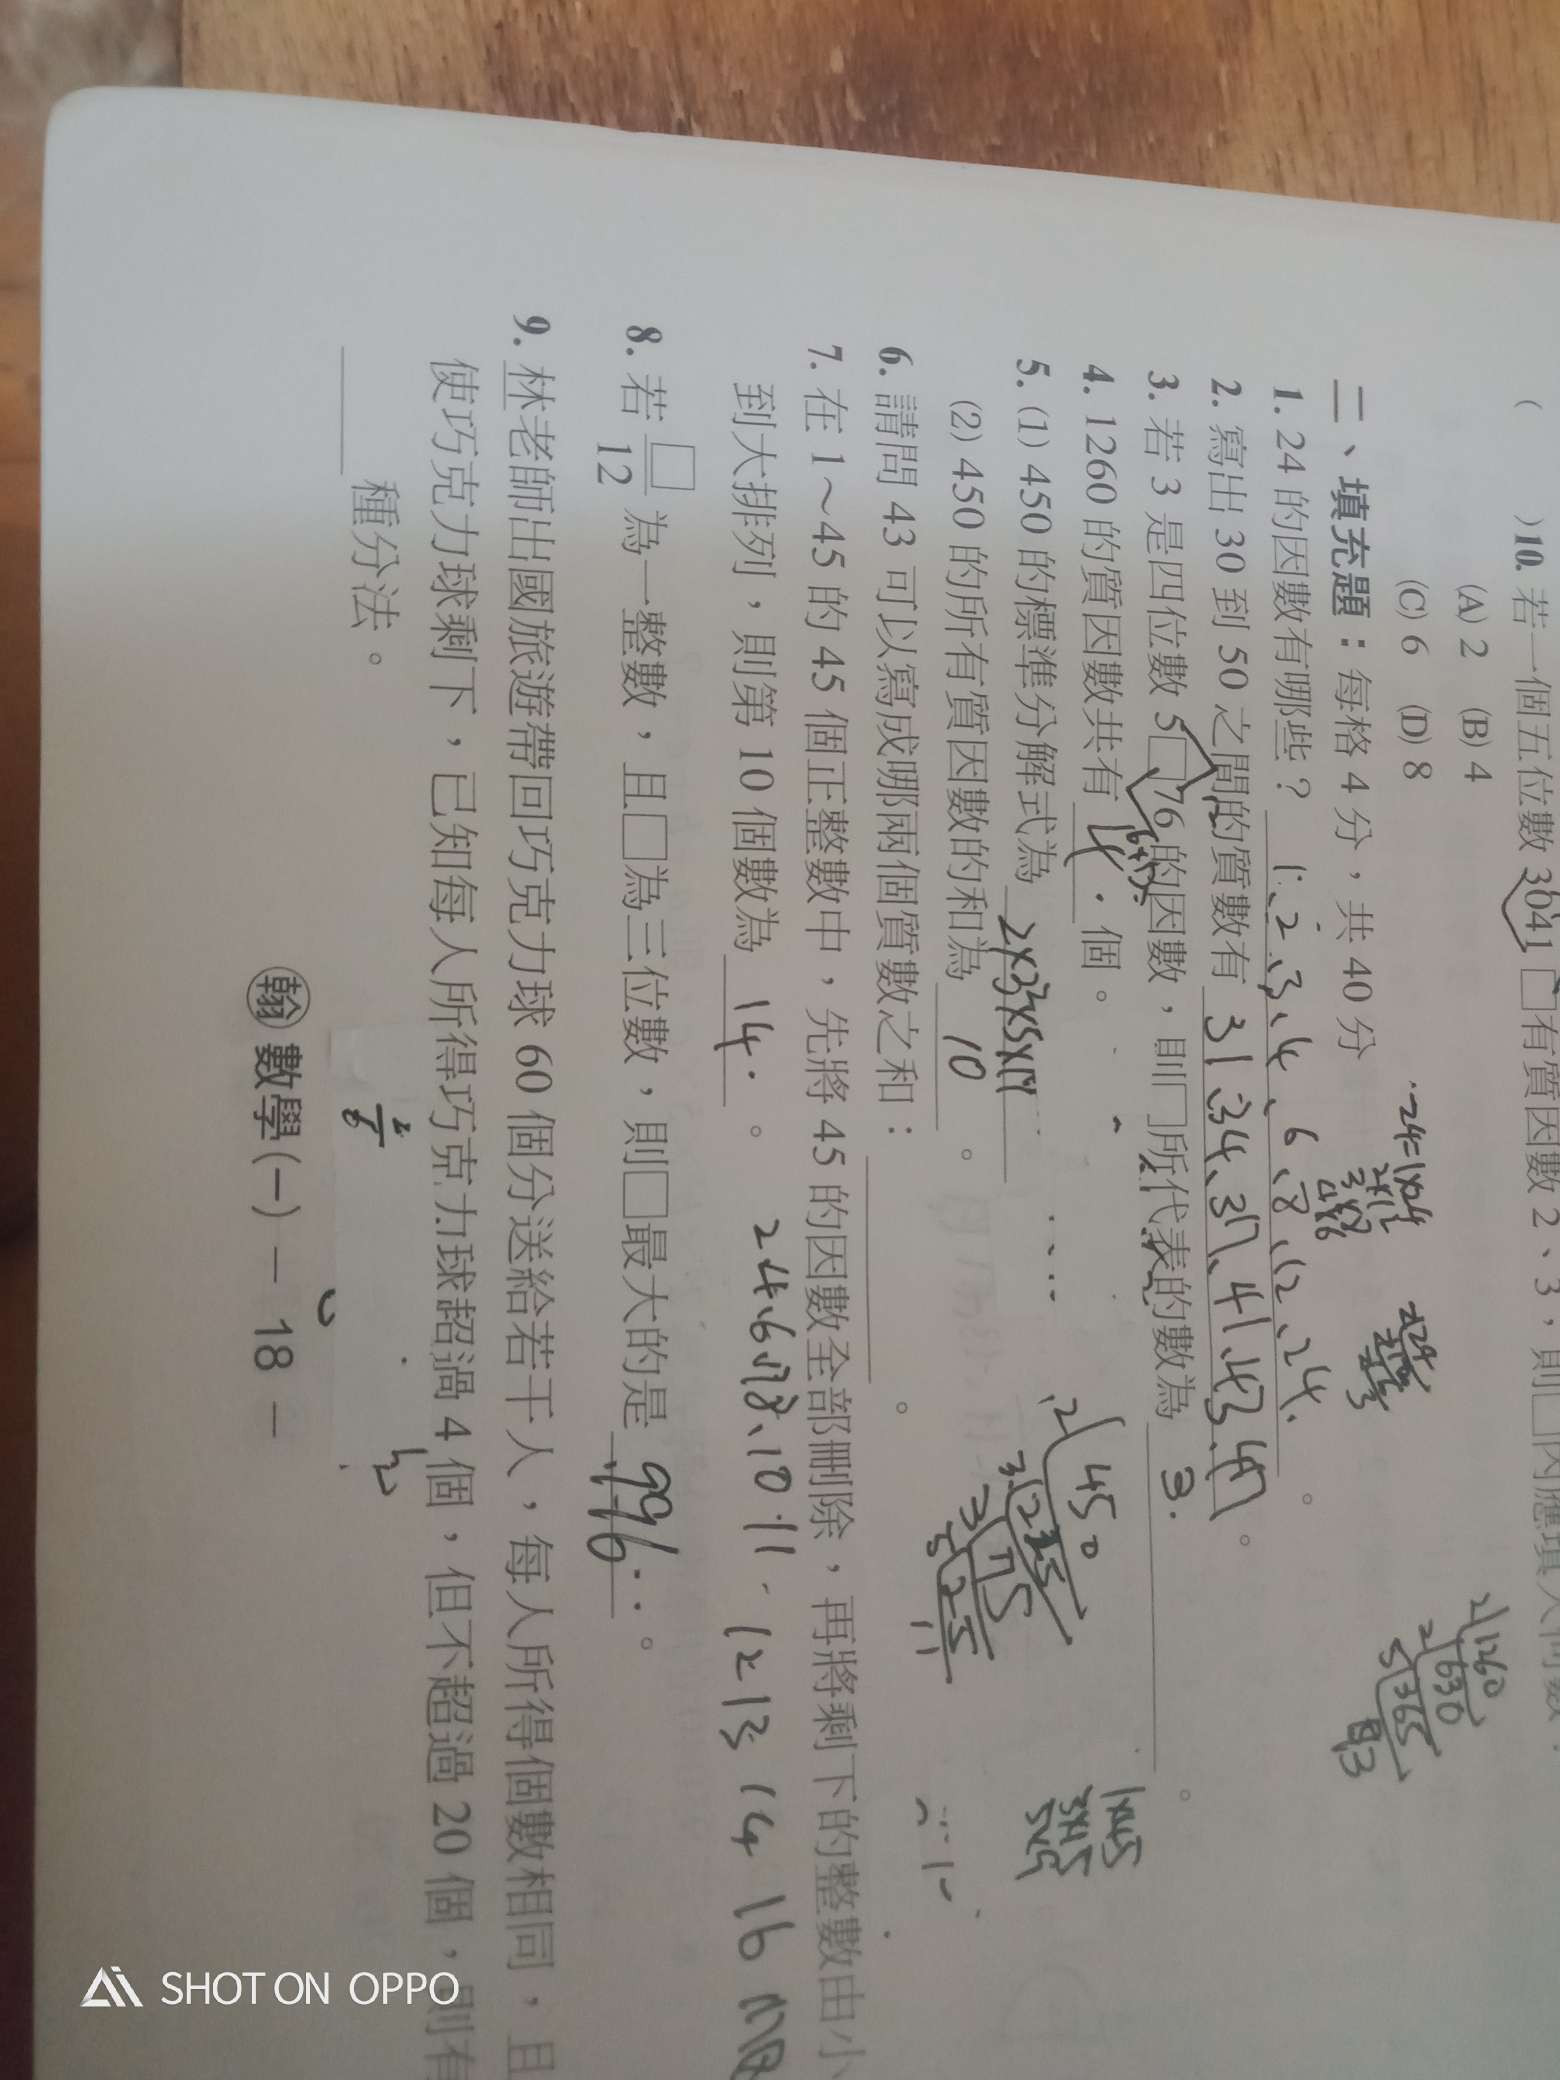 ( )10. 若一個五位數 3041□有質因數 2、3，則□內應填入何數
(A) 2 (B) 4
(C) 6 (D) 8
二、填充題：每格 4 分，共 40 分
1. 24 的因數有哪些？ 1、2、3、4、6、8、12、24. 。
24=1×24
2×12
3×8
4×6
2. 寫出 30 到 50 之間的質數有 31、34、37、41、43、47 。
3. 若 3 是四位數 5□76 的因數，則□所代表的數為 3. 。
4. 1260 的質因數共有 4 個。
2 1260
2 630
5 365
5. (1) 450 的標準分解式為
(2) 450 的所有質因數的和為 10 。
2 450
1×45
3×15
5×9
6. 請問 43 可以寫成哪兩個質數之和： 。
7. 在 1～45 的 45 個正整數中，先將 45 的因數全部刪除，再將剩下的整數由小
到大排列，則第 10 個數為 14. 。
2 4 6 7 8 10 11 12 13 14 16
8. 若 □/12 為一整數，且□為三位數，則□最大的是 996 。
9. 林老師出國旅遊帶回巧克力球 60 個分送給若干人，每人所得個數相同，且
使巧克力球剩下，已知每人所得巧克力球超過 4 個，但不超過 20 個，則有
種分法。
翰 數學(一) － 18 －
SHOT ON OPPO